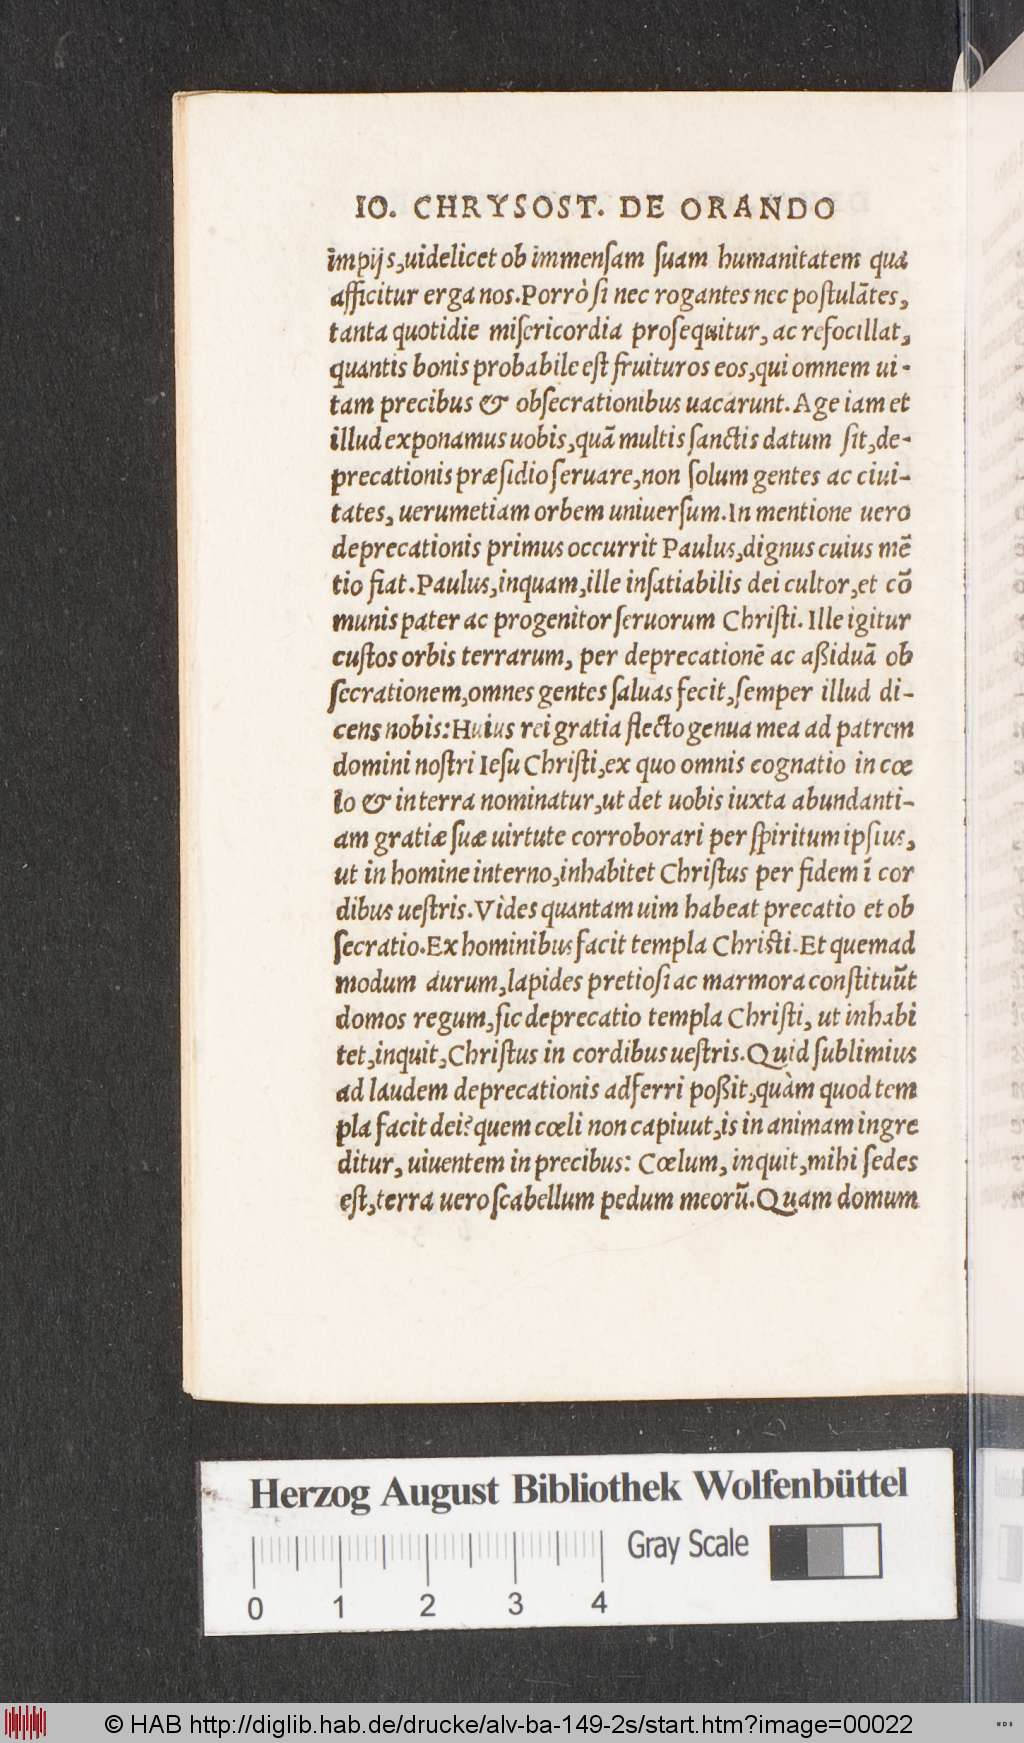 IO. CHRYSOST. DE ORANDO
īmpijs,uidelicet ob immenſam ſuam humanitatem qua
afficitur erga nos.Porrò ſi nec rogantes nec poſtulātes,
tanta quotidie miſericordia proſequitur, ac refocillat,
quantis bonis probabile eſt fruituros eos,qui omnem ui-
tam precibus & obſecrationibus uacarunt. Age iam et
illud exponamus uobis,quā multis ſanctis datum ſit,de-
precationis præſidio ſeruare,non ſolum gentes ac ciui-
tates, uerumetiam orbem uniuerſum.In mentione uero
deprecationis primus occurrit Paulus,dignus cuius mē
tio fiat.Paulus,inquam,ille inſatiabilis dei cultor,et cō
munis pater ac progenitor ſeruorum Chriſti. Ille igitur
cuſtos orbis terrarum, per deprecationē ac aßiduā ob
ſecrationem,omnes gentes ſaluas fecit,ſemper illud di-
cens nobis:Huius rei gratia flecto genua mea ad patrem
domini noſtri Ieſu Chriſti,ex quo omnis cognatio in cœ
lo & in terra nominatur,ut det uobis iuxta abundanti-
am gratiæ ſuæ uirtute corroborari per ſpiritum ipſius,
ut in homine interno,inhabitet Chriſtus per fidem ī cor
dibus ueſtris.Vides quantam uim habeat precatio et ob
ſecratio.Ex hominibus facit templa Chriſti.Et quemad
modum aurum,lapides pretioſi ac marmora conſtituūt
domos regum,ſic deprecatio templa Chriſti, ut inhabi
tet,inquit,Chriſtus in cordibus ueſtris.Quid ſublimius
ad laudem deprecationis adferri poßit,quàm quod tem
pla facit dei?quem cœli non capiuut,is in animam ingre
ditur, uiuentem in precibus: Cœlum, inquit,mihi ſedes
eſt,terra uero ſcabellum pedum meorū.Quam domum
Herzog August Bibliothek Wolfenbüttel
Gray Scale
0 1 2 3 4
© HAB http://diglib.hab.de/drucke/alv-ba-149-2s/start.htm?image=00022